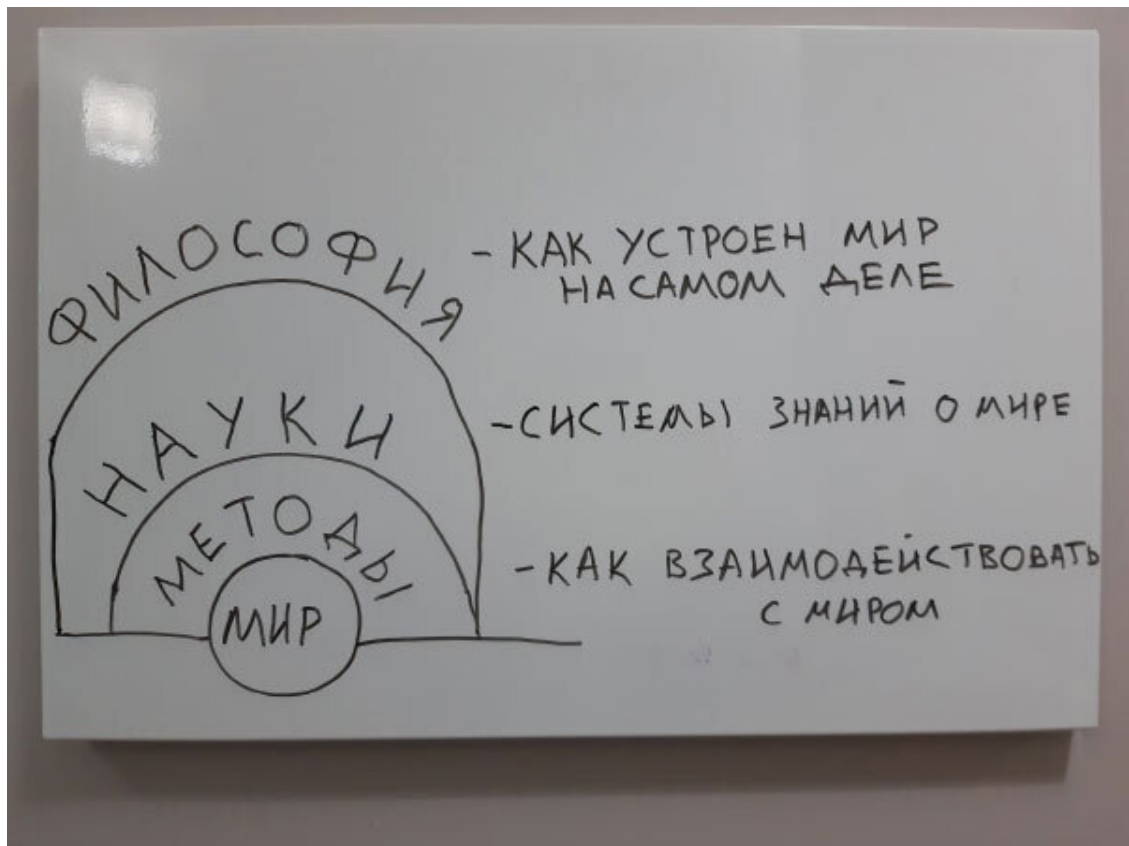 ФИЛОСОФИЯ
- КАК УСТРОЕН МИР
НА САМОМ ДЕЛЕ
НАУКИ
- СИСТЕМЫ ЗНАНИЙ О МИРЕ
МЕТОДЫ
- КАК ВЗАИМОДЕЙСТВОВАТЬ
С МИРОМ
МИР